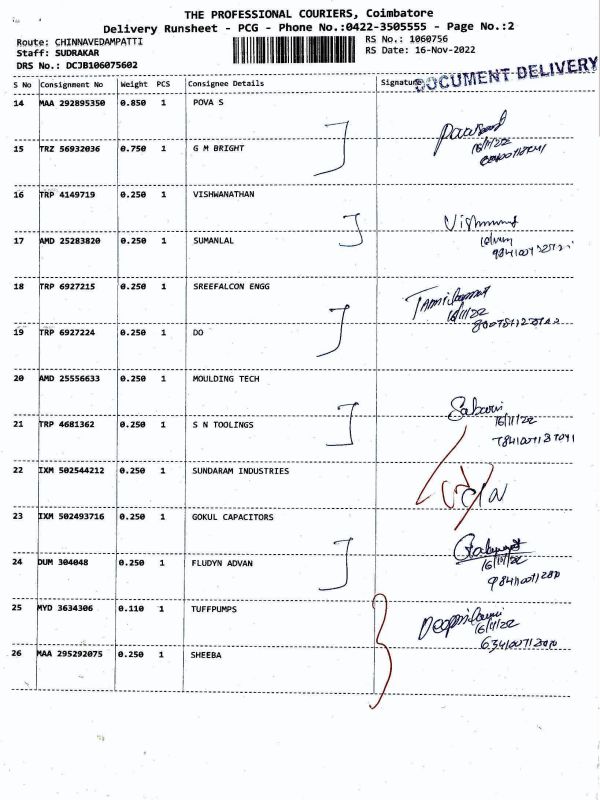 THE PROFESSIONAL COURIERS, Coimbatore
Delivery Runsheet - PCG - Phone No.:0422-3505555 - Page No.:2
Route: CHINNAVEDAMPATTI RS No.: 1060756
Staff: SUDRAKAR RS Date: 16-Nov-2022
DRS No.: DCJB106075602
DOCUMENT DELIVERY
S No Consignment No Weight PCS Consignee Details Signature
14 MAA 292895350 0.850 1 POVA S
15 TRZ 56932036 0.750 1 G M BRIGHT
16/11/22
16 TRP 4149719 0.250 1 VISHWANATHAN
17 AMD 25283820 0.250 1 SUMANLAL
18 TRP 6927215 0.250 1 SREEFALCON ENGG
16/11/22
19 TRP 6927224 0.250 1 DO
20 AMD 25556633 0.250 1 MOULDING TECH
Sabari
16/11/22
21 TRP 4681362 0.250 1 S N TOOLINGS
22 IXM 502544212 0.250 1 SUNDARAM INDUSTRIES
23 IXM 502493716 0.250 1 GOKUL CAPACITORS
24 DUM 304048 0.250 1 FLUDYN ADVAN
16/11/22
25 MYD 3634306 0.110 1 TUFFPUMPS
16/11/22
26 MAA 295292075 0.250 1 SHEEBA